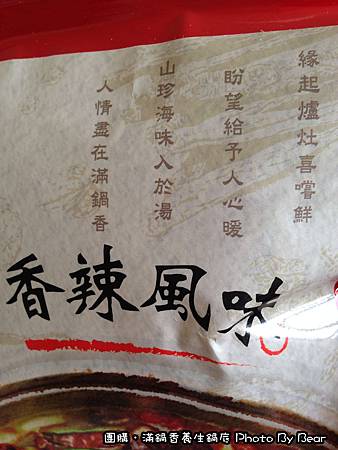 緣起爐灶喜嚐鮮
盼望給予人心暖
山珍海味入於湯
人情盡在滿鍋香
香辣風味
團購‧滿鍋香養生鍋底 Photo By Bear